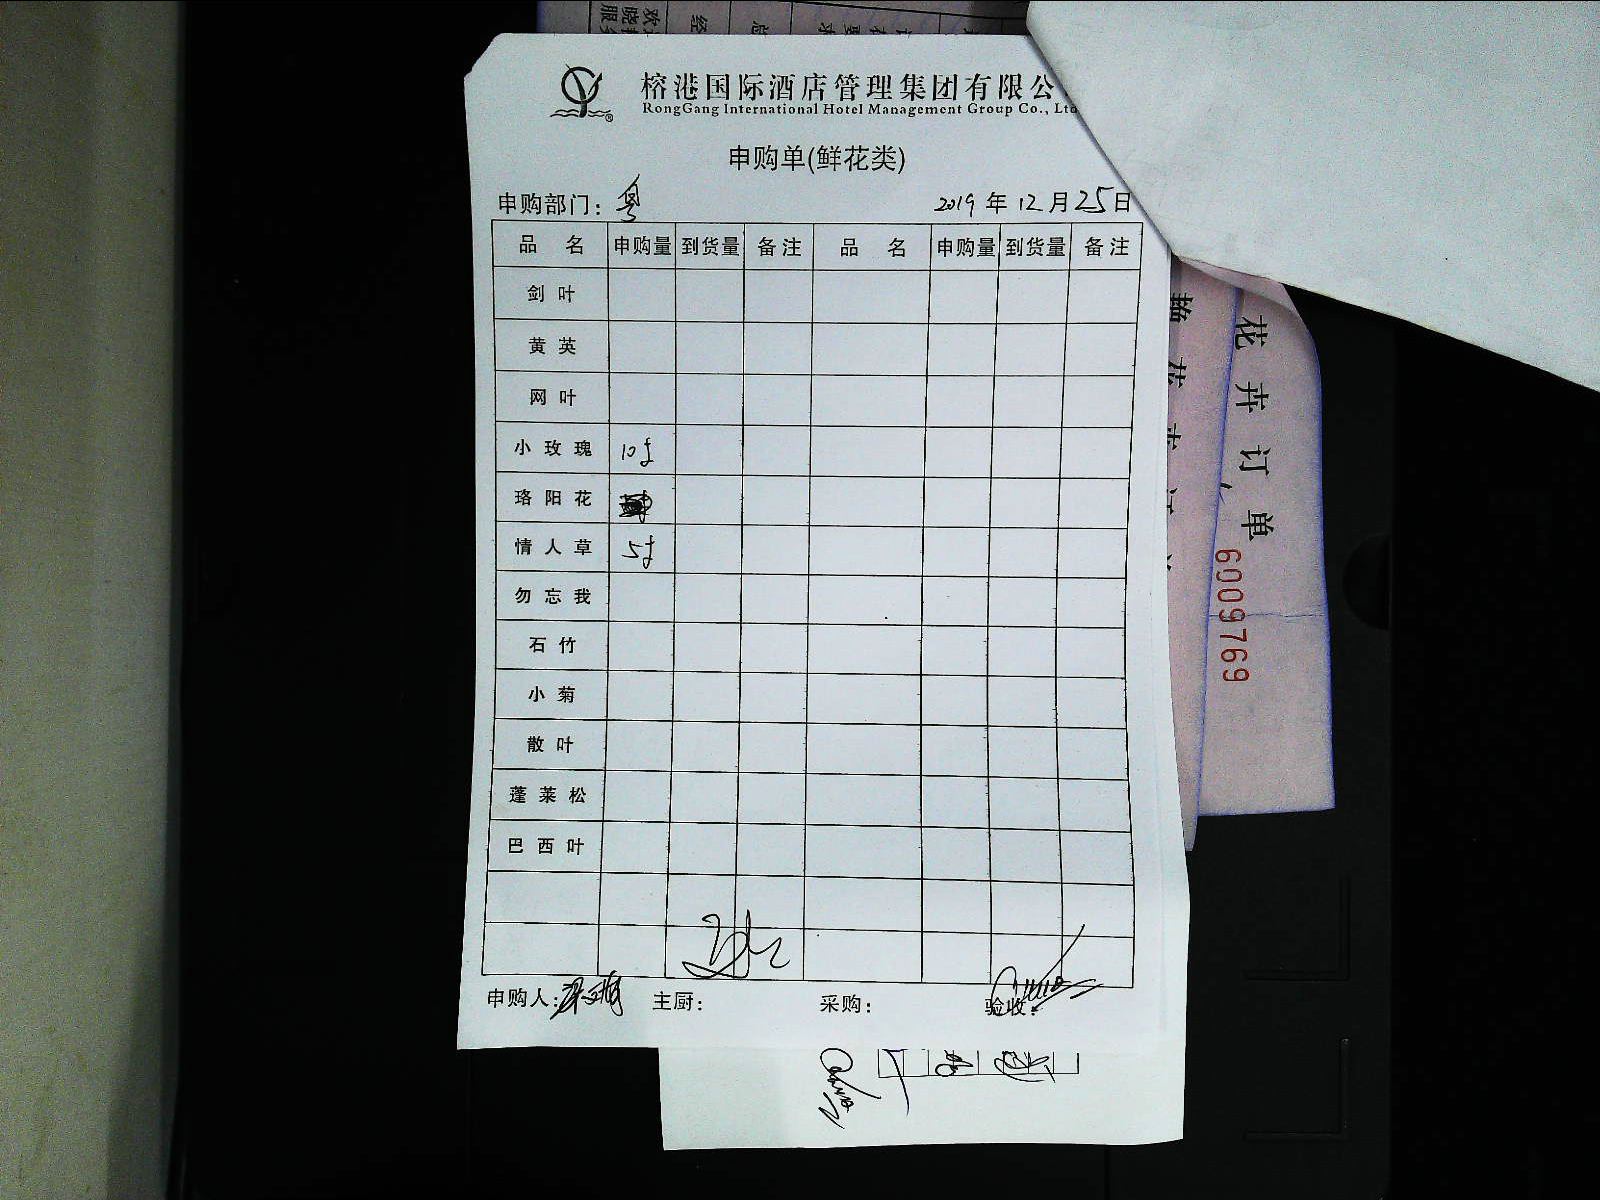 榕港国际酒店管理集团有限公
RongGang International Hotel Management Group Co., Ltd
申购单(鲜花类)
申购部门：粤 2019年12月25日
品名 申购量 到货量 备注 品名 申购量 到货量 备注
剑叶
黄英
网叶
小玫瑰 10扎
珞阳花
情人草 5扎
勿忘我
石竹
小菊
散叶
蓬莱松
巴西叶
申购人： 主厨： 采购： 验收：
花卉订单
6009769